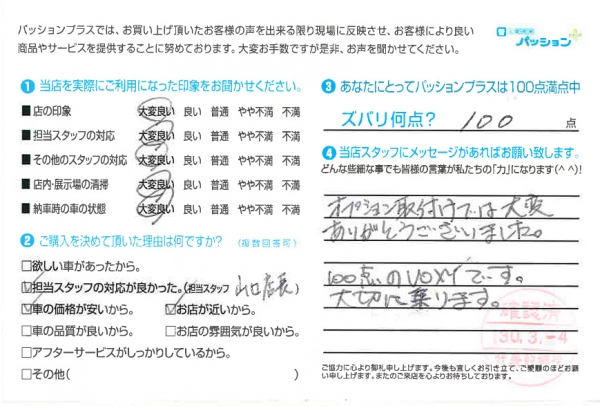 パッションプラスでは、お買い上げ頂いたお客様の声を出来る限り現場に反映させ、お客様により良い
商品やサービスを提供することに努めております。大変お手数ですが是非、お声を聞かせてください。
パッション
① 当店を実際にご利用になった印象をお聞かせください。
■ 店の印象 大変良い 良い 普通 やや不満 不満
■ 担当スタッフの対応 大変良い 良い 普通 やや不満 不満
■ その他のスタッフの対応 大変良い 良い 普通 やや不満 不満
■ 店内・展示場の清掃 大変良い 良い 普通 やや不満 不満
■ 納車時の車の状態 大変良い 良い 普通 やや不満 不満
② ご購入を決めて頂いた理由は何ですか? (複数回答可)
□欲しい車があったから。
☑担当スタッフの対応が良かった。(担当スタッフ 山口店長)
☑車の価格が安いから。 ☑お店が近いから。
□車の品質が良いから。 □お店の雰囲気が良いから。
□アフターサービスがしっかりしているから。
□その他( )
③ あなたにとってパッションプラスは100点満点中
ズバリ何点? 100 点
④ 当店スタッフにメッセージがあればお願い致します。
どんな些細な事でも皆様の言葉が私たちの「力」になります(^^)!
オプション取付けでは大変
ありがとうございましたね。
100点のVOXYです。
大切に乗ります。
確認済
30.3.-4
ご協力に心より御礼申し上げます。今後も宜しくお引き立て、ご愛顧のほどお願
い申し上げます。またのご来店を心よりお待ちしております。